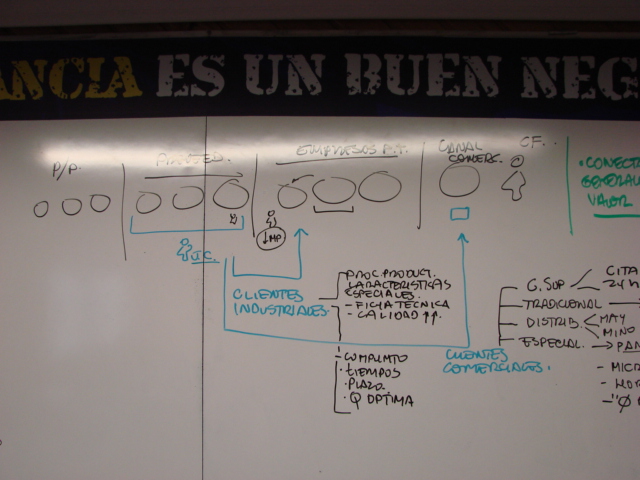 ANCIA ES UN BUEN NEG
P/P.
EMPRESAS P.T.
CANAL
COMERC.
CF.
• CONECTA
GENERAR
VALOR
↓MP
CLIENTES
INDUSTRIALES
PROC. PRODUCT.
CARACTERISTICAS
ESPECIALES.
- FICHA TECNICA
- CALIDAD ↑↑.
- CUMPLIMTO
• TIEMPOS
• PLAZO.
• Q OPTIMA
CLIENTES
COMERCIALES.
G. SUP
CITA
24 H
TRADICIONAL
DISTRIB.
MAY
MINO
ESPECIAL.
→ PAN
- MICR
- HOR